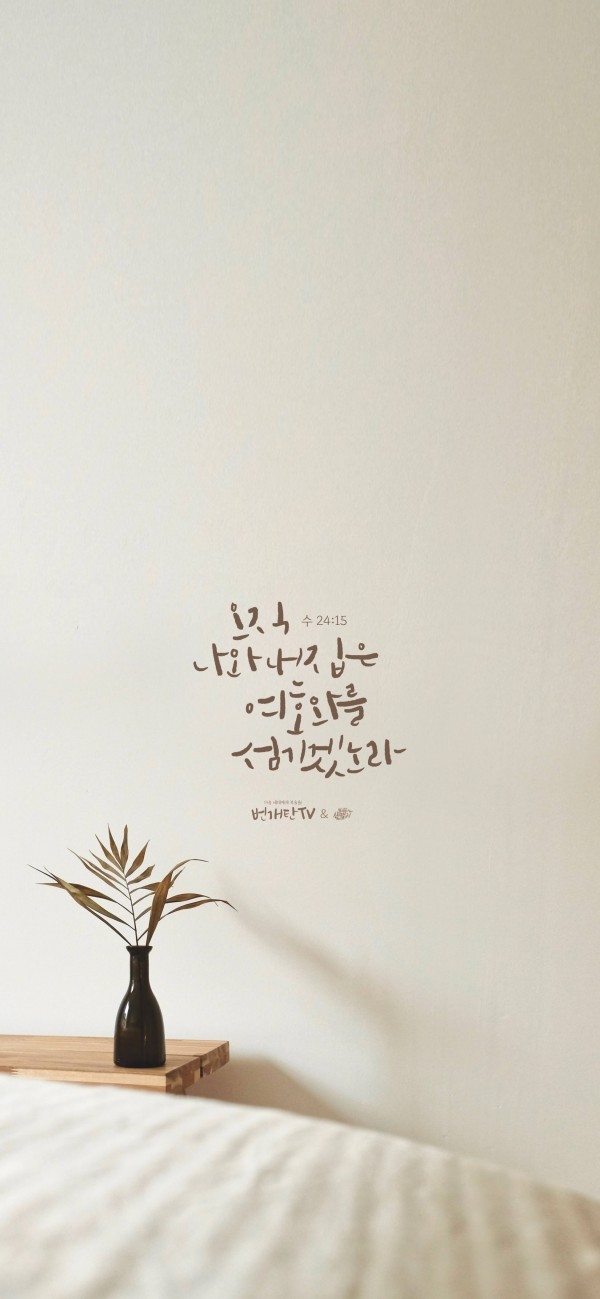 오직 수 24:15
나와 내 집은
여호와를
섬기겠노라
번개탄TV &